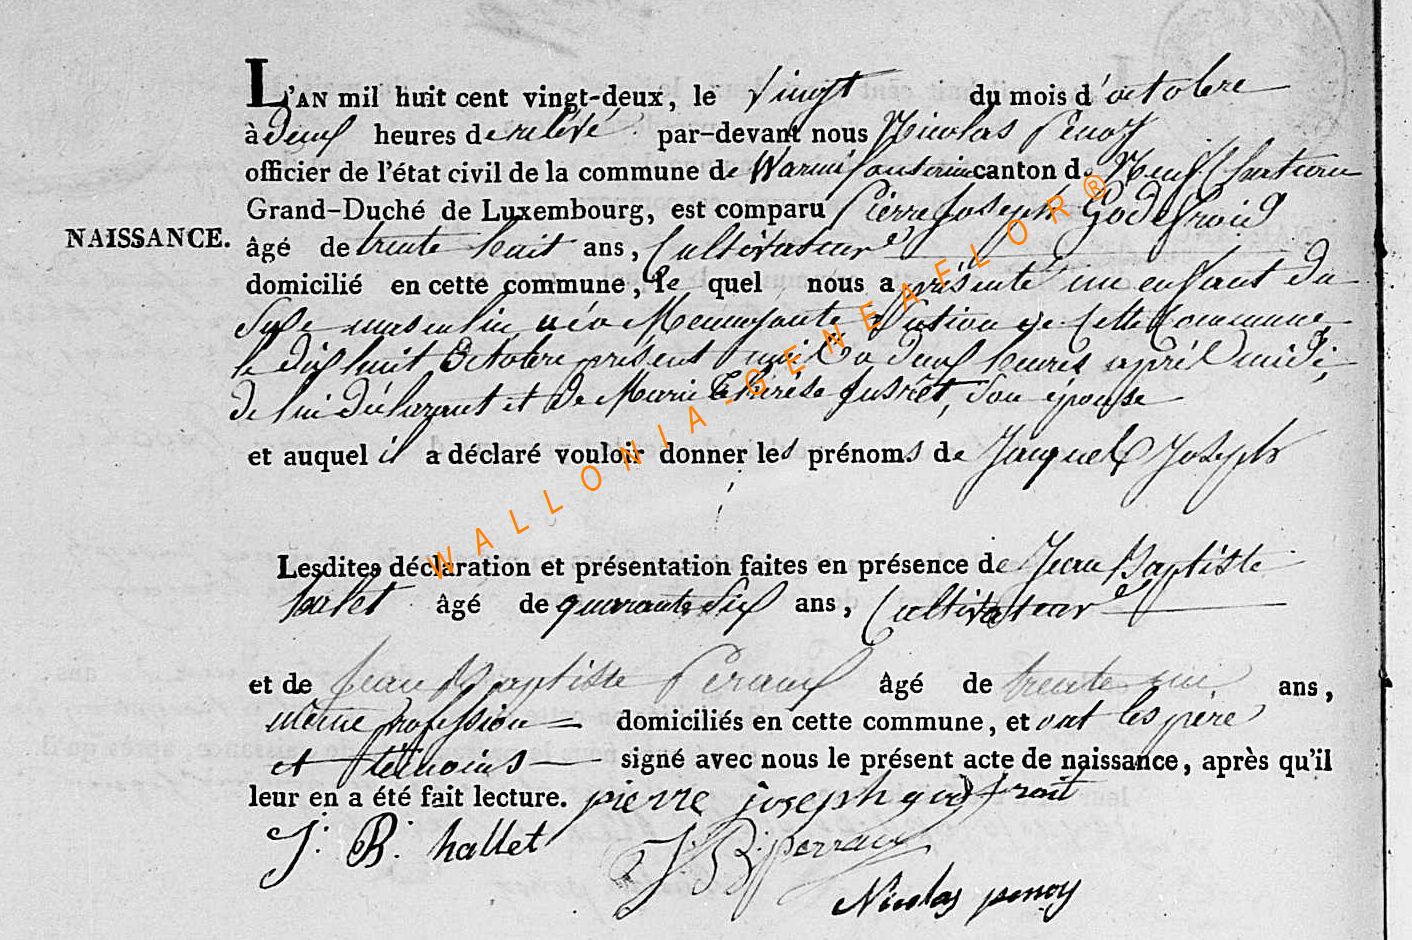 L'AN mil huit cent vingt-deux, le vingt du mois d'octobre
à deux heures de relevé par-devant nous Nicolas Penoy
officier de l'état civil de la commune de Warmifontaine canton de Neufchateau
Grand-Duché de Luxembourg, est comparu Pierre Joseph Godefroid
NAISSANCE.
âgé de trente huit ans, Cultivateur
domicilié en cette commune, le quel nous a présenté un enfant du
Sexe masculin né a Menufontaine Section de Cette Commune
le dix huit Octobre présent mois a deux heures aprés midi,
de lui déclarant et de Marie Thérèse son épouse
et auquel il a déclaré vouloir donner les prénoms de Jacques Joseph
Lesdites déclaration et présentation faites en présence de Jean Baptiste
halet âgé de quarante Six ans, Cultivateur
et de Jean Baptiste Peraux âgé de trente un ans,
même profession domiciliés en cette commune, et ont les père
et témoins signé avec nous le présent acte de naissance, après qu'il
leur en a été fait lecture. pierre joseph godfroit
J. B. hallet J. B. perraux
Nicolas penoy
WALLONIA-GENEAFLOR®